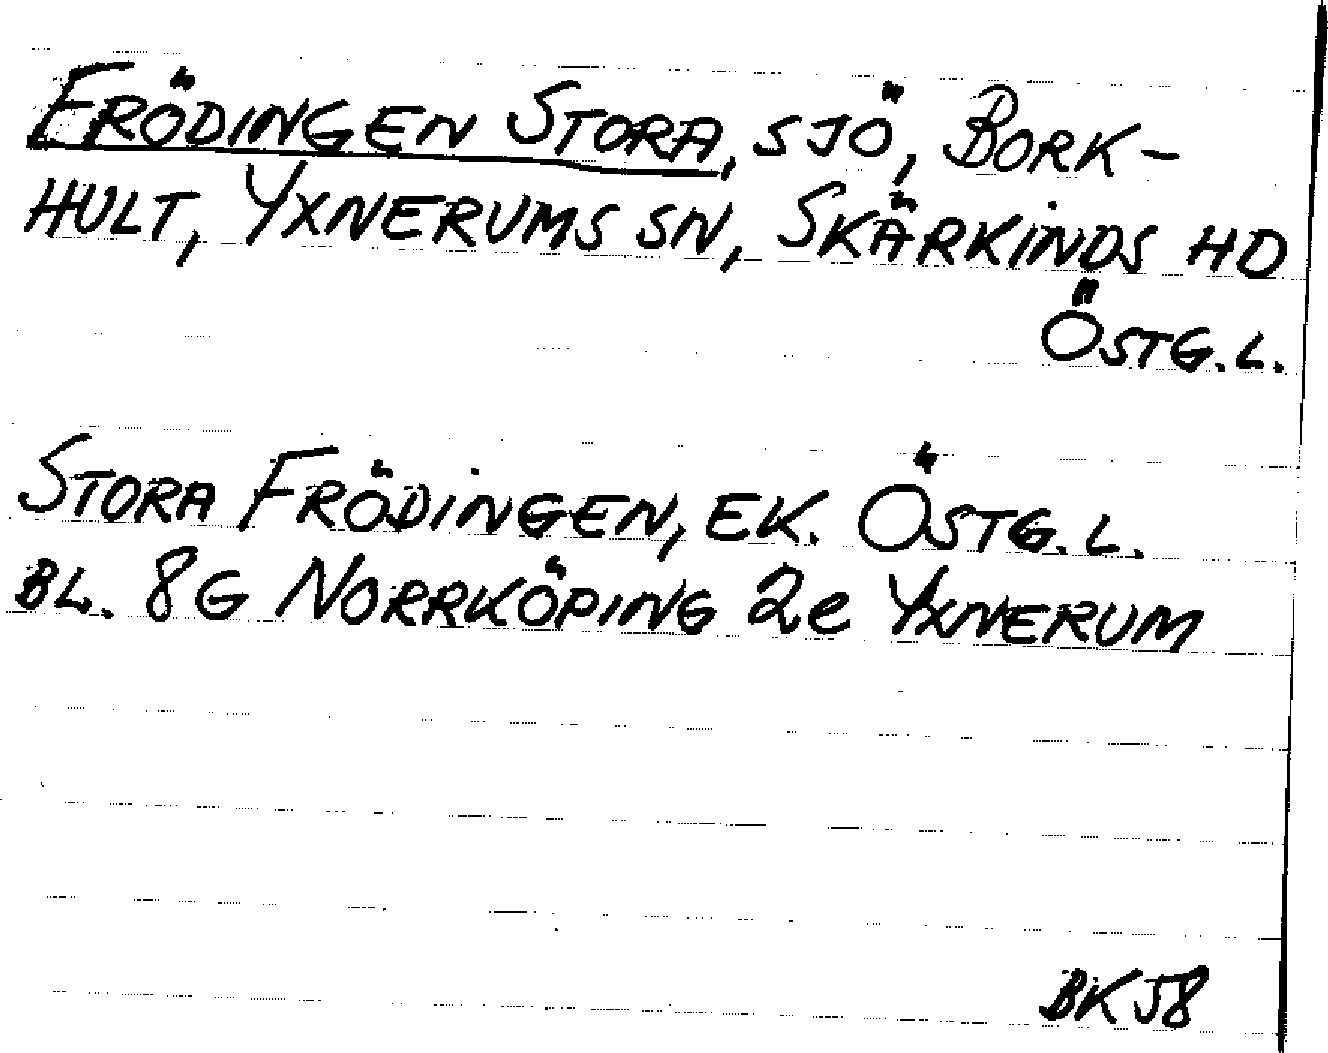 FRÖDINGEN STORA, SJÖ, BORK-
HULT, YXNERUMS SN, SKÄRKINDS HD
ÖSTG.L.
STORA FRÖDINGEN, EK. ÖSTG.L.
BL. 8G NORRKÖPING 2e YXNERUM
BK58